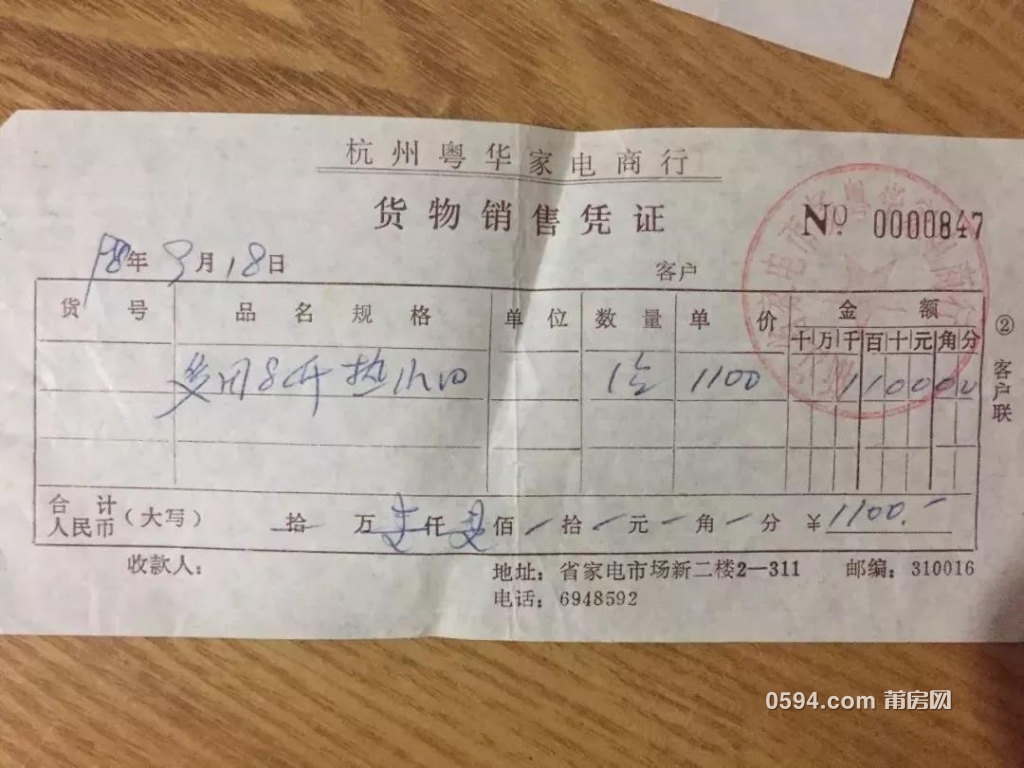 杭州粤华家电商行
货物销售凭证
№ 0000847
98年9月18日 客户
货号 品名规格 单位 数量 单价 金额
十万千百十元角分
8开热 1台 1100 110000
合计人民币（大写） 拾 万 壹仟 壹佰 - 拾 - 元 - 角 - 分 ￥1100.-
收款人：
地址：省家电市场新二楼2—311 邮编：310016
电话：6948592
②客户联
0594.com 莆房网